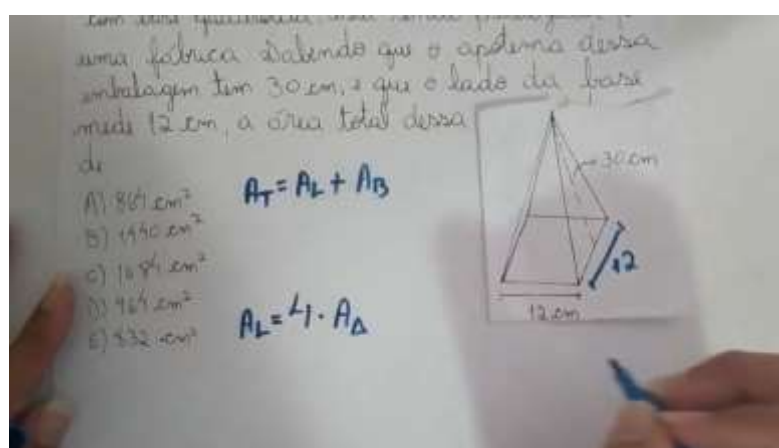 uma fábrica Sabendo que o apótema dessa
embalagem tem 30 cm, e que o lado da base
mede 12 cm, a área total dessa
de
A) 864 cm²
B)
C)
D) 964 cm²
E) 832 cm²
A_T = A_L + A_B
A_L = 4 · A_Δ
30 cm
12
12 cm